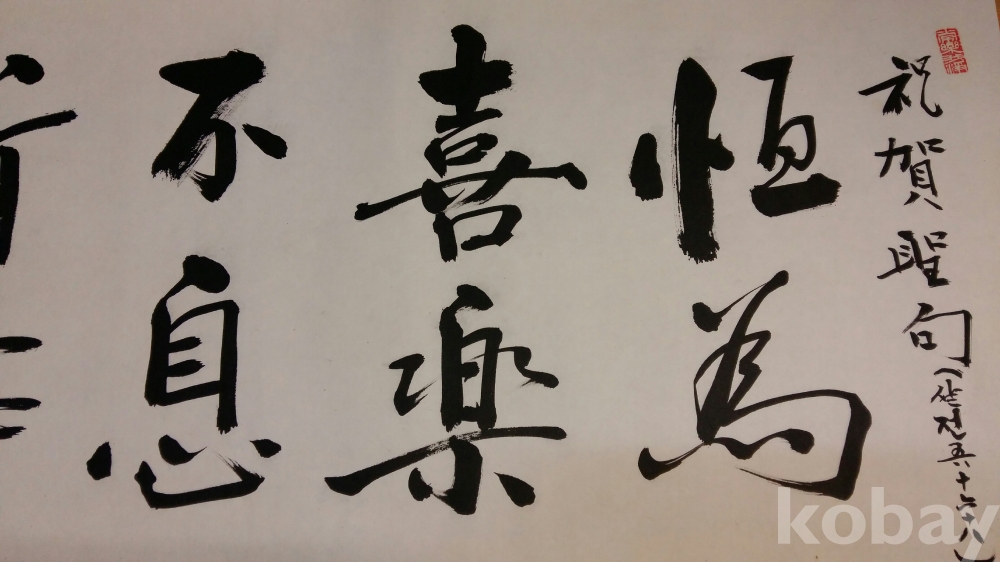 祝賀聖句(살전五十六十八)
恒為
喜樂
不息
kobay